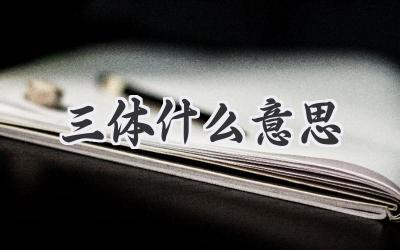 三体什么意思